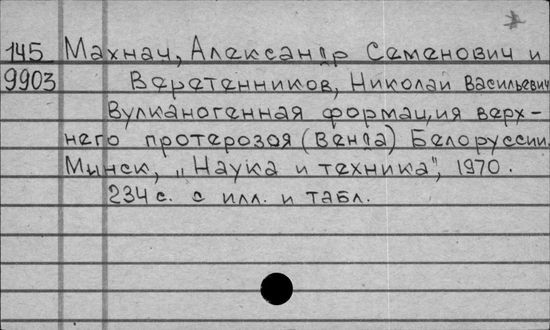 145 Махнач, Александр Семенович и
9903 Веретенников, Николай Васильевич
Вулканогенная формация верх-
него протерозоя (Венда) Белоруссии.
Минск, "Наука и техника", 1970.
234 с. с илл. и табл.